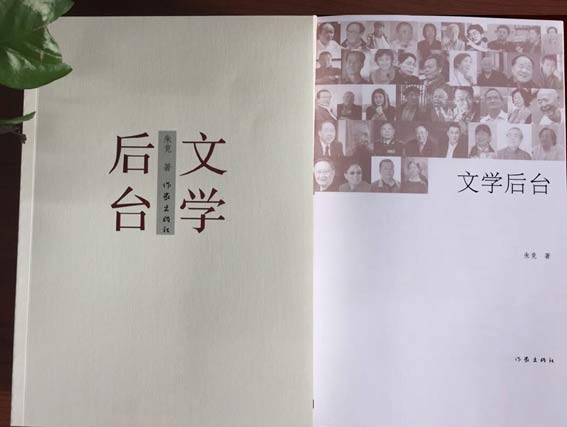 文学
后台
朱竞 著
作家出版社
文学后台
朱竞 著
作家出版社